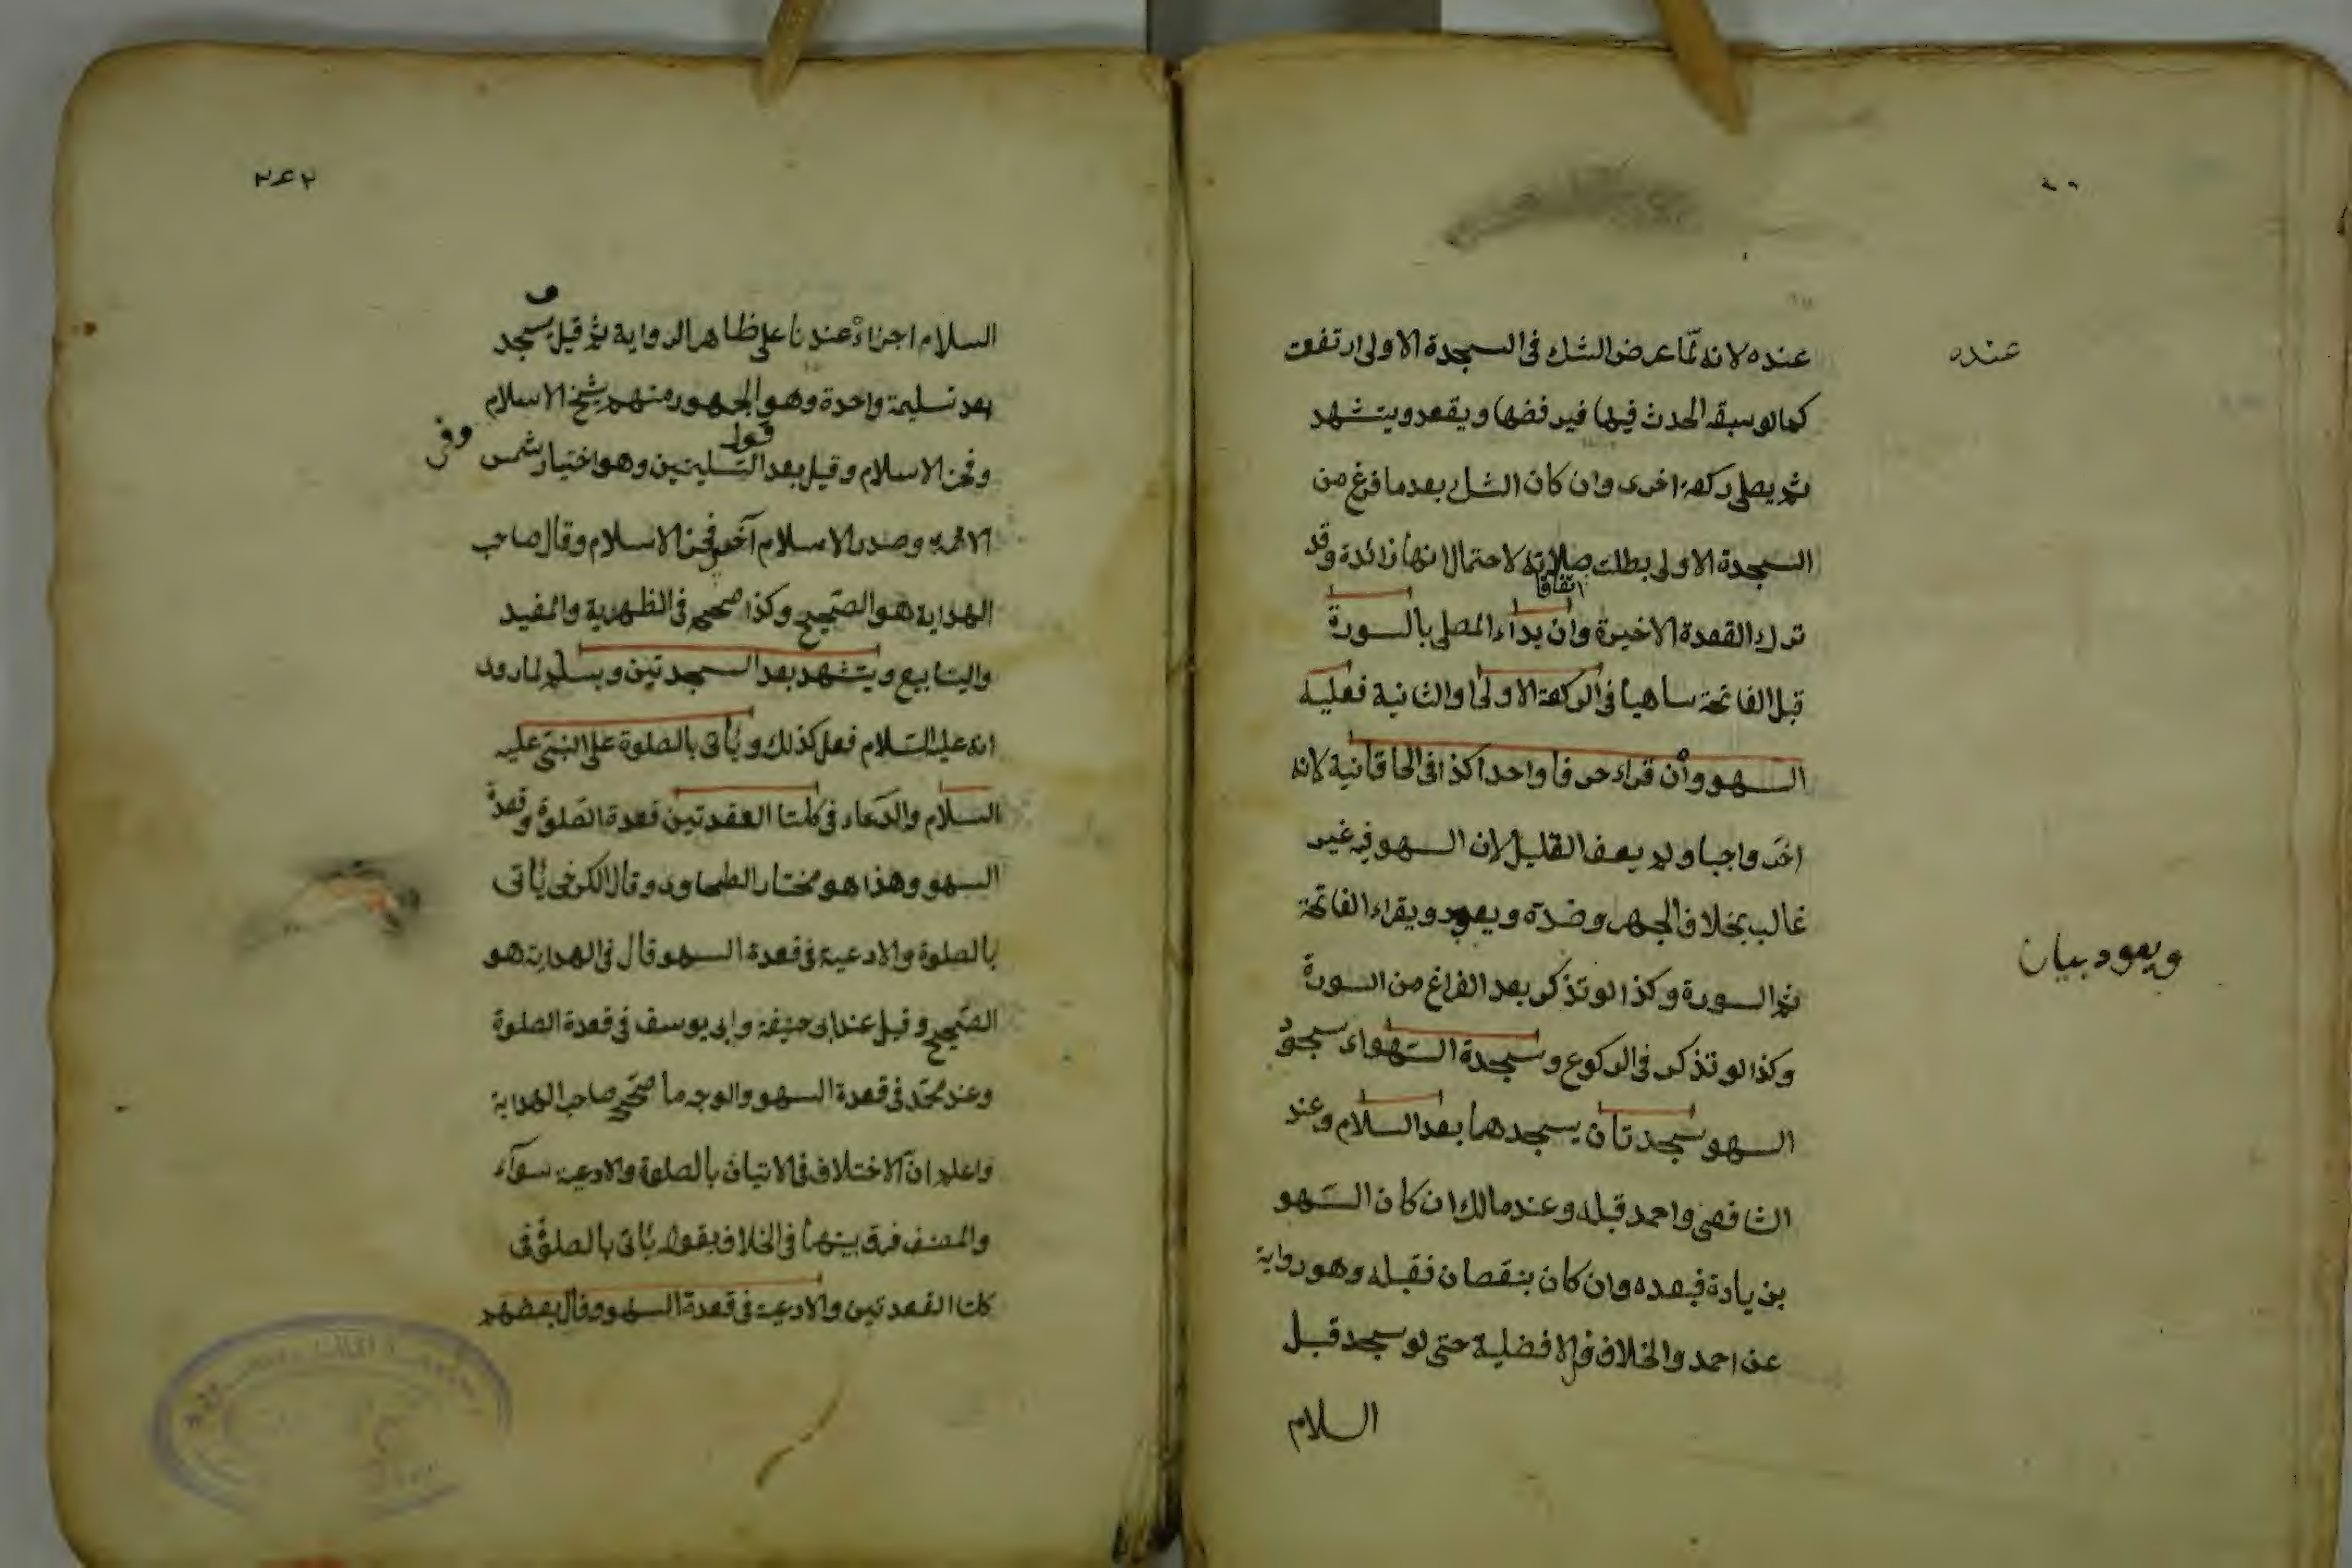 عنده لانه لمّا عرض الشك فى السجدة الاولى ارتفعت
عنده
كما لو سبقه الحدث فيها فيرفضها ويقعد ويتشهد
ثم يصلى ركعة اخرى وان كان الشك بعد ما فرغ من
السجدة الاولى بطلت صلاته لاحتمال انها زائدة وقد
اتفاقا
ترك القعدة الاخيرة وان بداء المصلى بالسورة
قبل الفاتحة ساهيا فى الركعة الاولى او الثانية فعليه
السهو وأن قراء حرفا واحدا كذا فى الخاقانية لانه
اخّر واجبا ولم يعف القليل لان السهو فيه غير
غالب بخلاف الجهر وضدّه ويعود ويقراء الفاتحة
ويعود بيان
ثم السورة وكذا لو تذكر بعد الفراغ من السورة
وكذا لو تذكر فى الركوع وسجدة السّهواء سجود
السهو سجدتان يسجدهما بعد السلام وعند
الشافعى واحمد قبله وعند مالك ان كان السّهو
بزيادة فبعده وان كان بنقصان فقبله وهو رواية
عن احمد والخلاف فى الافضلية حتى لو سجد قبل
السلام
٢٤٢
السلام اجزاءْ عندنا على ظاهر الرواية ثم قيل يسجد
بعد تسليمة واحدة وهو الجمهور منهم شيخ الاسلام
قول
وفخر الاسلام وقيل بعد التسليمتين وهو اختيار شمس
وفى
الائمة وصدر الاسلام آخى فخر الاسلام وقال صاحب
الهداية هو الصّحيح وكذا صححه فى الظهرية والمفيد
والينابيع ويتشهد بعد السجدتين ويسلم لما روى
انه عليه السّلام فعل كذلك ويأتى بالصلوة على النبىّ عليه
السلام والدّعاء فى كلتا العقدتين قعدة الصّلوة وقعدة
السهو وهذا هو مختار الطحاوى وقال الكرخى يأتى
بالصلوة والادعية فى قعدة السهو قال فى الهداية هو
الصّحيح وقيل عند ابى حنيفة وابى يوسف فى قعدة الصلوة
وعند محمّد فى قعدة السهو والوجه ما صحّحه صاحب الهداية
واعلم انّ الاختلاف فى الاتيان بالصلوة والادعية سوآء
والمصنف فرق بينهما فى الخلاف بقوله يأتى بالصلوة فى
كلتا القعدتين والادعية فى قعدة السهو وقال بعضهم